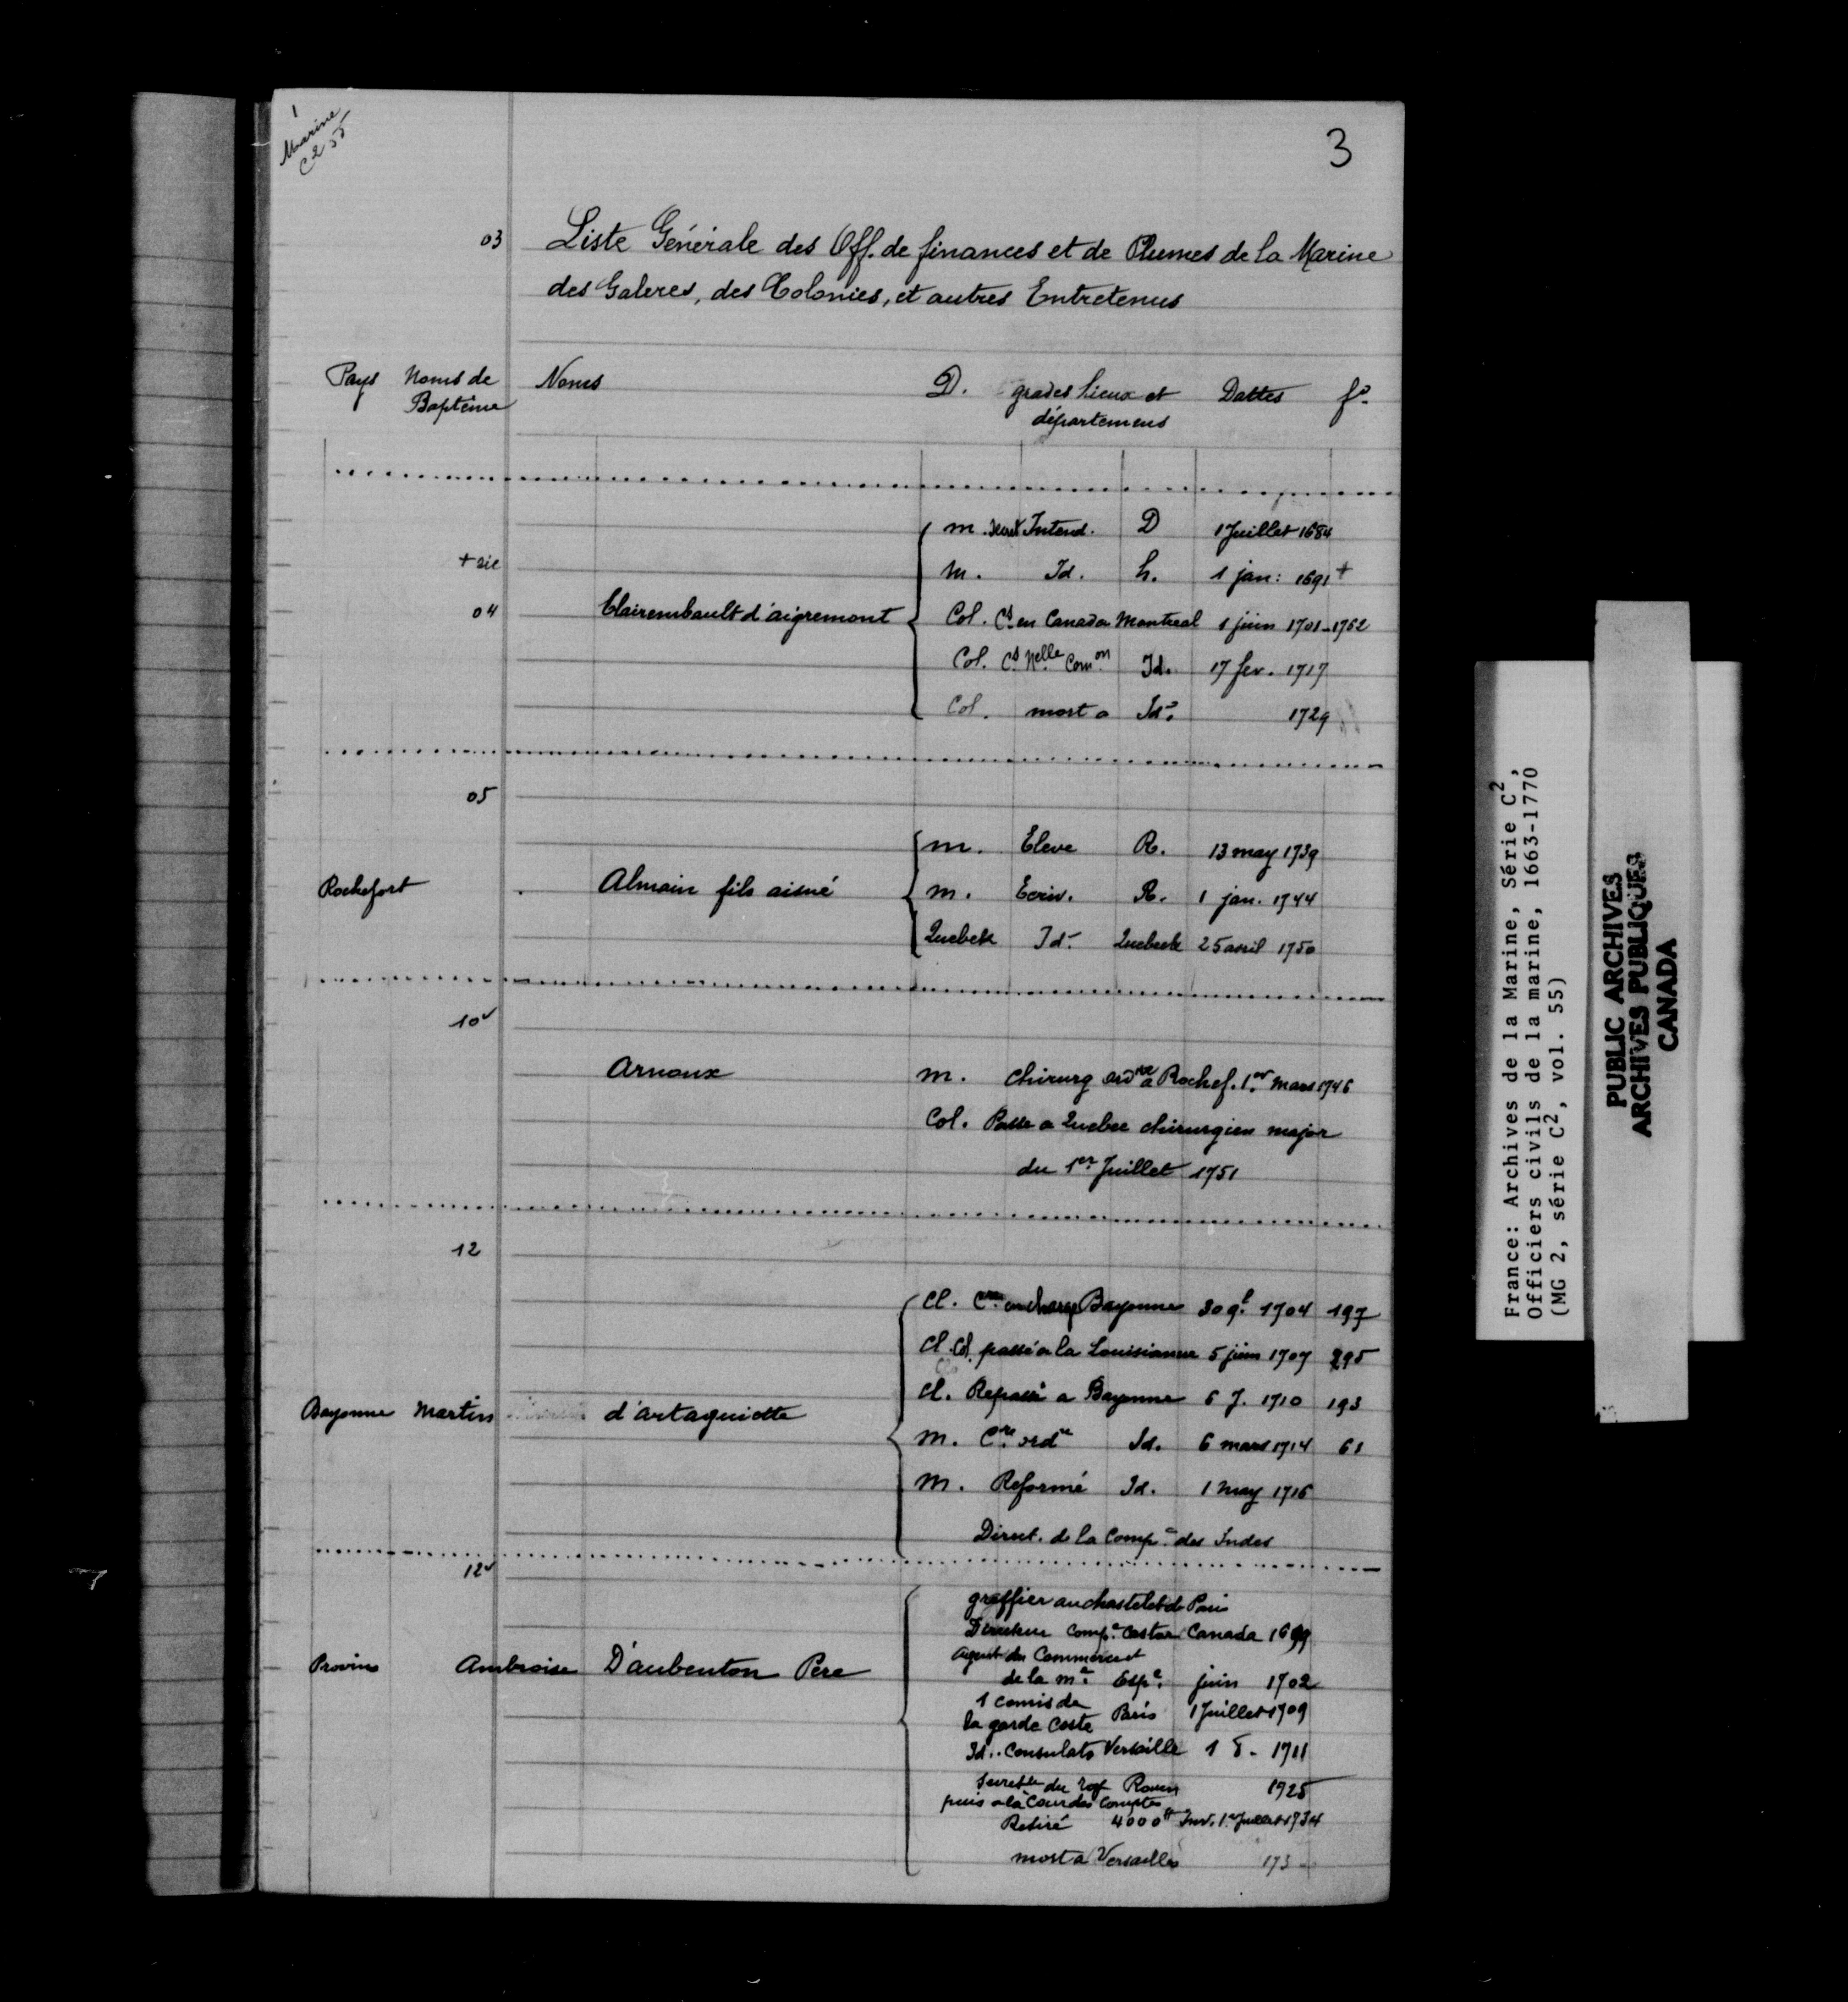 1
Marine
C2 55
3
03 Liste Générale des Off. de finances et de Plumes de la Marine
des Galeres, des Colonies, et autres Entretenus
Pays Noms de Baptême Noms D. grades lieux et départemens Dattes fo.
m. Intend. D 1 Juillet 1684
+ sic m. Id. h. 1 jan: 1691 +
04 Clairembault d'aigremont Col. Cs en Canada Montreal 1 juin 1701-1762
Col. Cs Nelle Comon Id. 17 fev. 1717
Col. mort a Id. 1729
05
m. Eleve R. 13 may 1739
Rochefort Almain fils aisné m. Ecriv. R. 1 jan. 1744
Quebek Id. Quebeck 25 avril 1750
10v
Arnoux m. Chirurg ordre a Rochef. 1er Mars 1746
Col. Passe a Quebec chirurgien major
du 1er Juillet 1751
12
Cl. Cre en charge Bayonne 30 9b. 1704 197
Cl. Col. passé a la Louisianne 5 juin 1707 295
Cl. Repassé a Bayonne 6 J. 1710 193
Bayonne Martin d'artaguiette
m. Cre ordre Id. 6 mars 1714 61
m. Reformé Id. 1 May 1716
Direct. de la Compe des Indes
12v
greffier au chastelet de Paris
Directeur Compe Castor Canada 1699
Provins Ambroise D'aubenton Pere Agent du Commerce et
de la me Espe. juin 1702
1 comis de
la garde Coste Paris 1 Juillet 1709
Id. Consulats Versaille 1 8. 1711
du roy Rouen 1725
puis a la Cour des Comptes
Retiré 4000tt Inv. 1er Juillet 1734
mort a Versailles 173-
France: Archives de la Marine, Série C2,
Officiers civils de la marine, 1663-1770
(MG 2, série C2, vol. 55)
PUBLIC ARCHIVES
ARCHIVES PUBLIQUES
CANADA